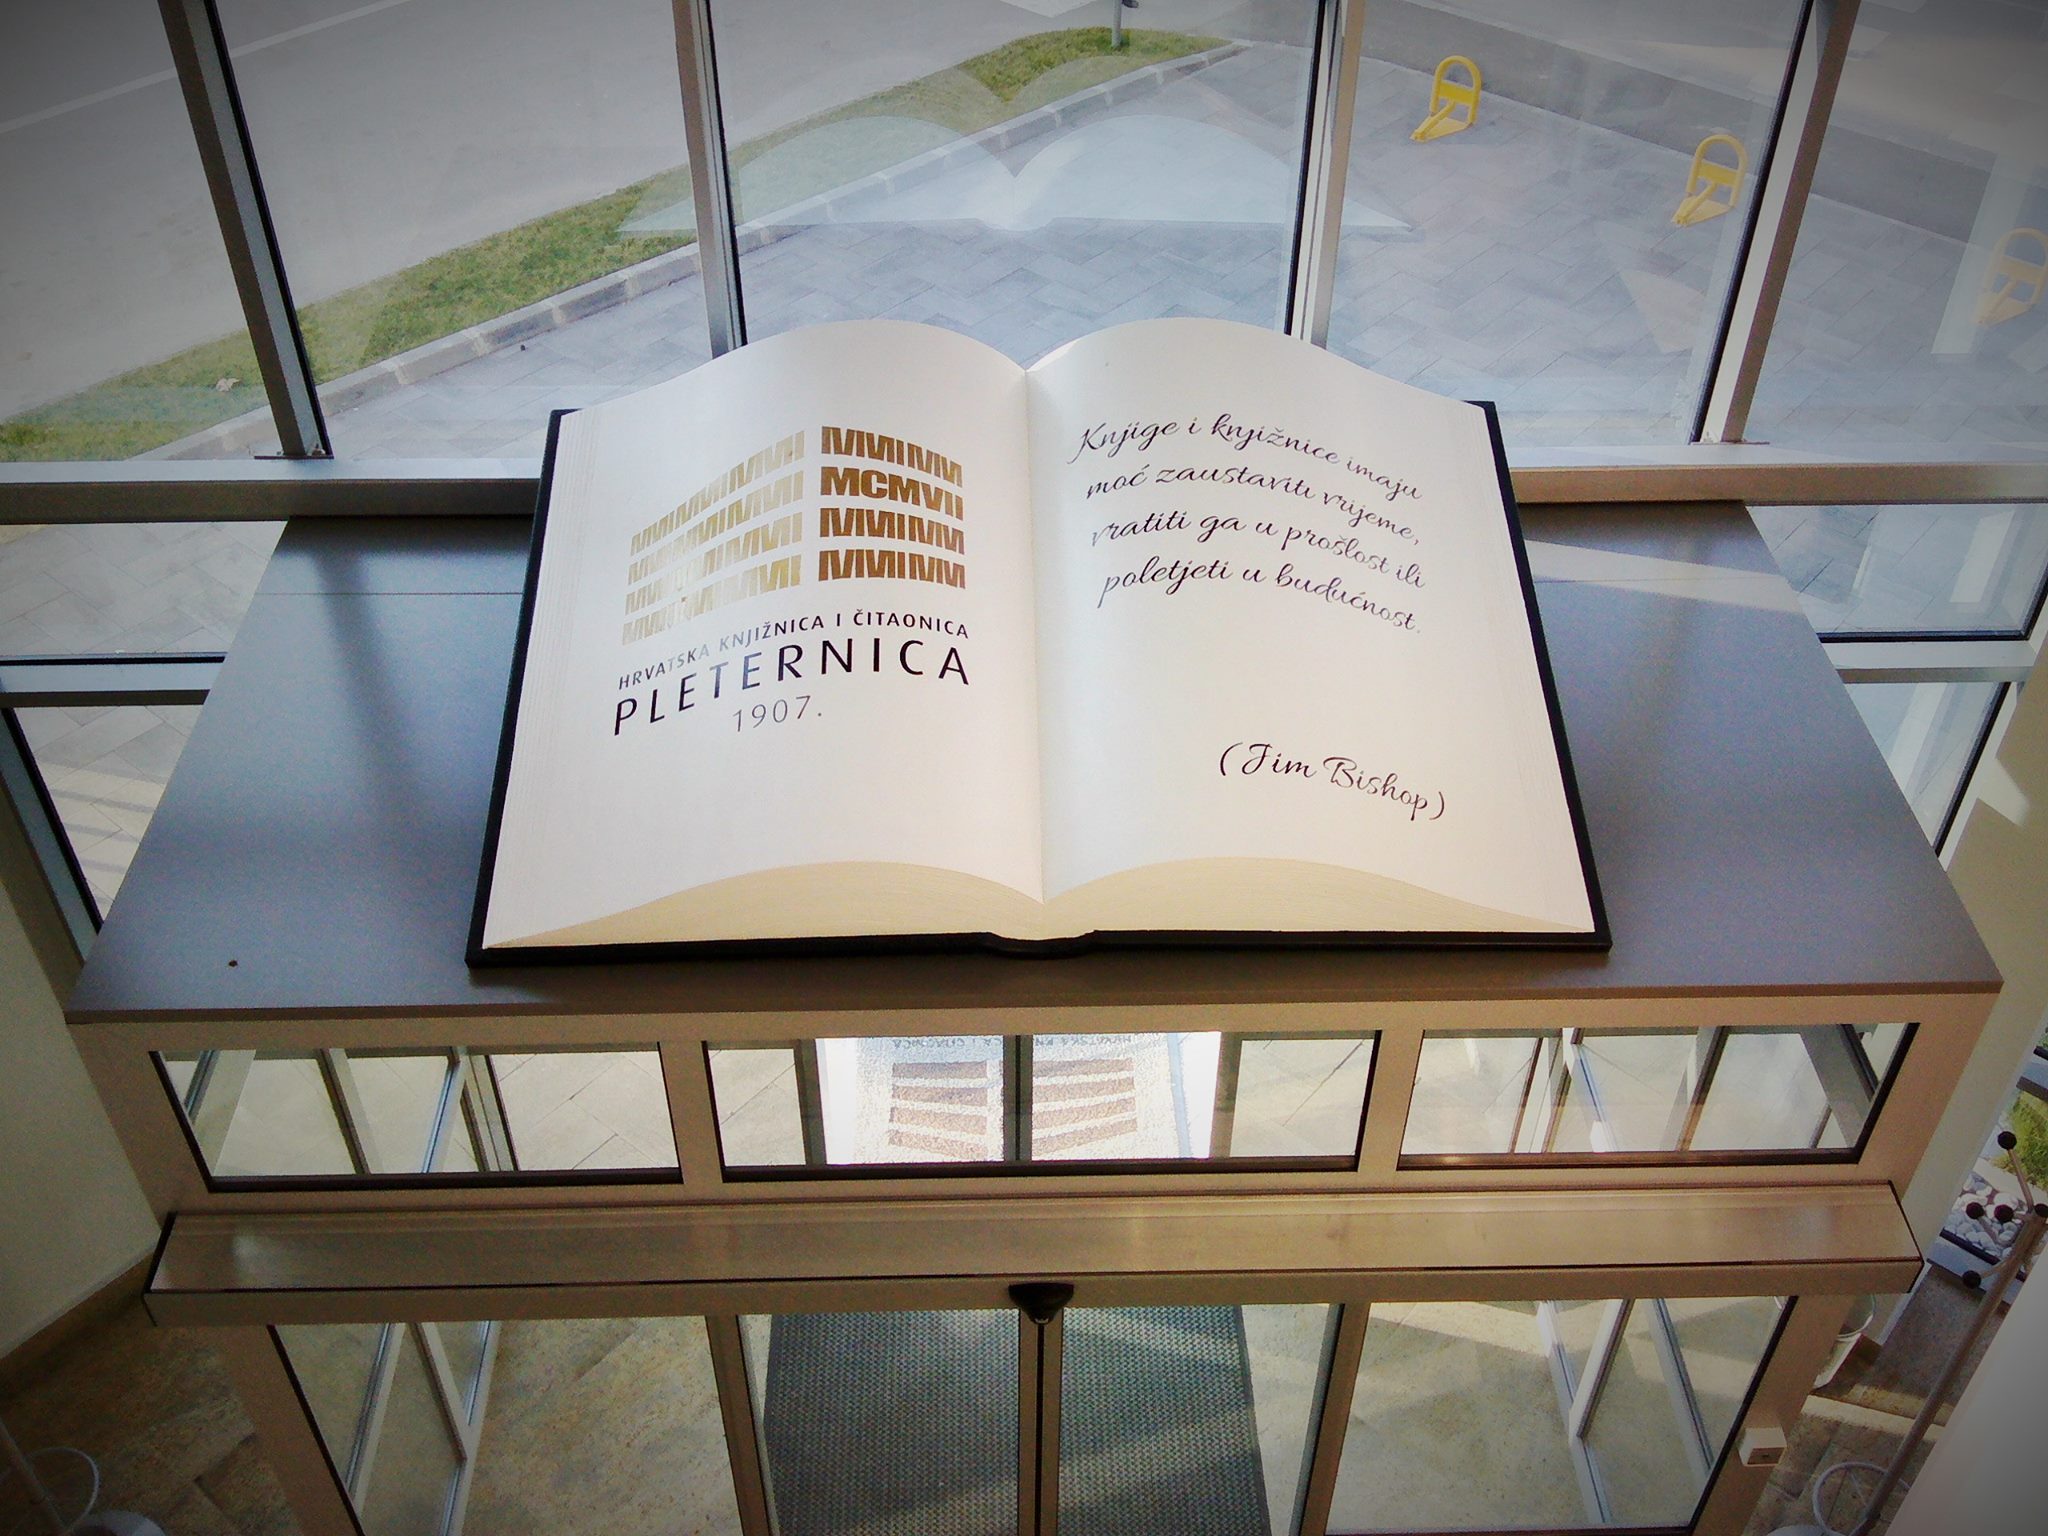 MCMVII
HRVATSKA KNJIŽNICA I ČITAONICA
PLETERNICA
1907.
Knjige i knjižnice imaju
moć zaustaviti vrijeme,
vratiti ga u prošlost ili
poletjeti u budućnost.
(Jim Bishop)
HRVATSKA KNJIŽNICA I ČITAONICA